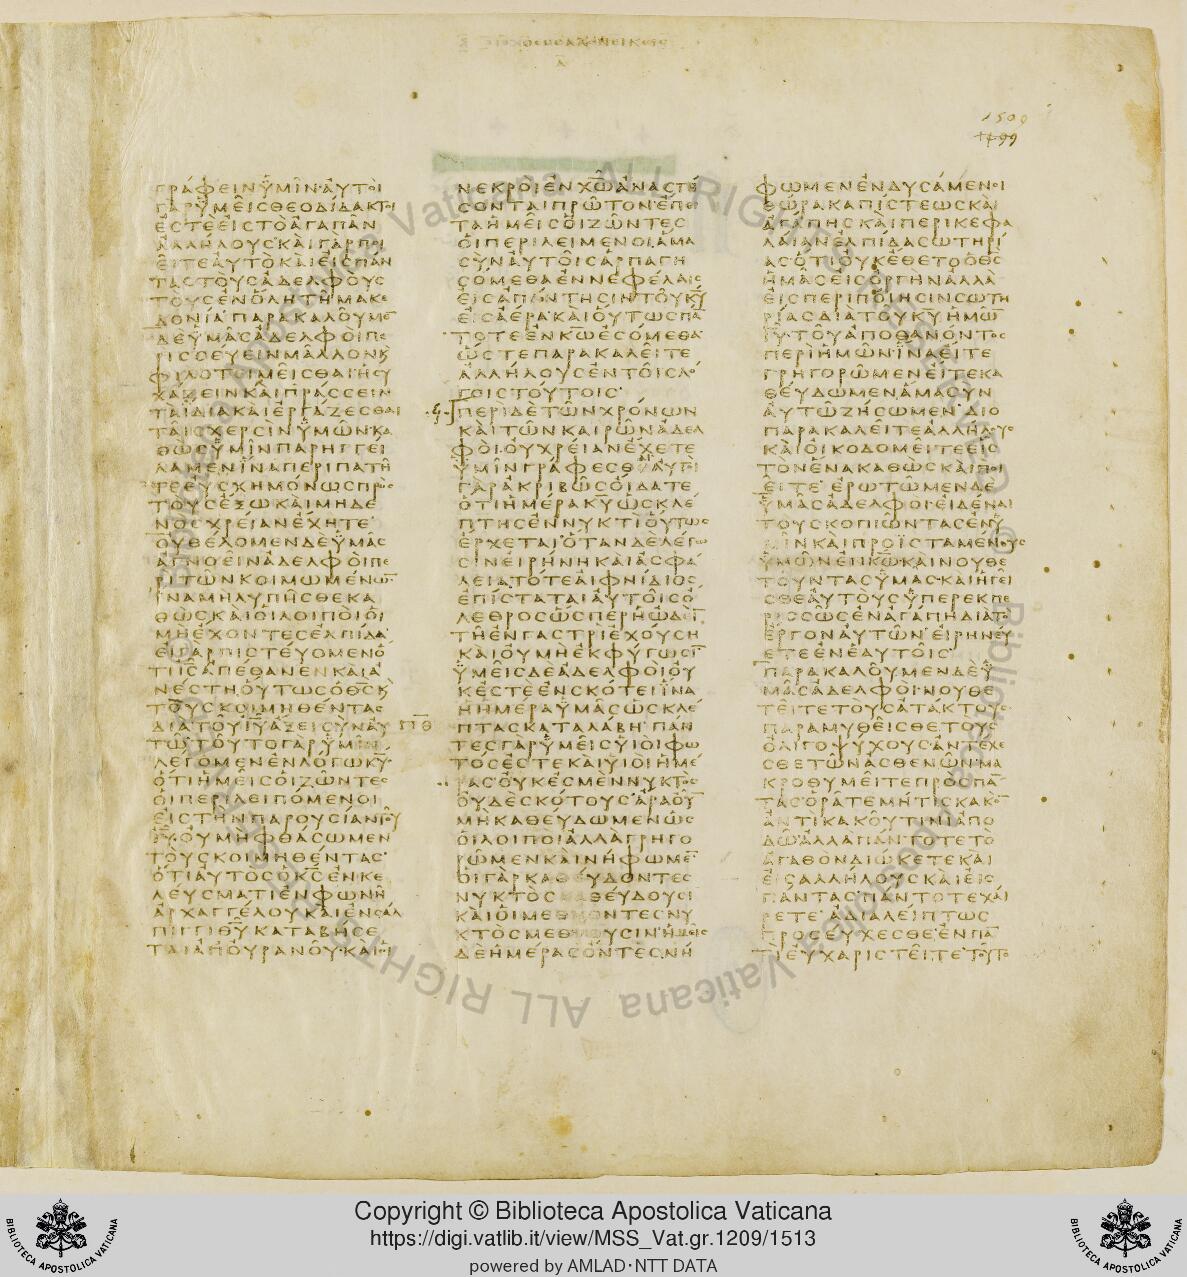 1500
1499
ΓΡΑΦΕΙΝΫΜΙΝ·ΑΥΤΟΙ
ΓΑΡΫΜΕΙΣΘΕΟΔΙΔΑΚΤΟΙ
ΕΣΤΕΕΙΣΤΟΑΓΑΠΑΝ
ΑΛΛΗΛΟΥΣ·ΚΑΙΓΑΡΠΟΙ
ΕΙΤΕΑΥΤΟΚΑΙΕΙΣΠΑΝ
ΤΑΣΤΟΥΣΑΔΕΛΦΟΥΣ
ΤΟΥΣΕΝΟΛΗΤΗΜΑΚΕ
ΔΟΝΙΑ·ΠΑΡΑΚΑΛΟΥΜΕ̅
ΔΕΫΜΑΣΑΔΕΛΦΟΙΠΕ
ΡΙΣΣΕΥΕΙΝΜΑΛΛΟΝΚ
ΦΙΛΟΤΟΙΜΕΙΣΘΑΙΗΣΥ
ΧΑΖΕΙΝΚΑΙΠΡΑΣΣΕΙΝ
ΤΑΙΔΙΑΚΑΙΕΡΓΑΖΕΣΘΑΙ
ΤΑΙΣΧΕΡΣΙΝΫΜΩΝ·ΚΑ
ΘΩΣΫΜΙΝΠΑΡΗΓΓΕΙ
ΛΑΜΕΝΪΝΑΠΕΡΙΠΑΤΗ
ΤΕΕΥΣΧΗΜΟΝΩΣΠΡΟΣ
ΤΟΥΣΕΞΩΚΑΙΜΗΔΕ
ΝΟΣΧΡΕΙΑΝΕΧΗΤΕ·
ΟΥΘΕΛΟΜΕΝΔΕΫΜΑΣ
ΑΓΝΟΕΙΝΑΔΕΛΦΟΙΠΕ
ΡΙΤΩΝΚΟΙΜΩΜΕΝΩ̅
ΪΝΑΜΗΛΥΠΗΣΘΕΚΑ
ΘΩΣΚΑΙΟΙΛΟΙΠΟΙΟΙ
ΜΗΕΧΟΝΤΕΣΕΛΠΙΔΑ·
ΕΙΓΑΡΠΙΣΤΕΥΟΜΕΝΟ
ΤΙΙ̅Σ̅ΑΠΕΘΑΝΕΝΚΑΙΑ
ΝΕΣΤΗΟΥΤΩΣΟΘ̅Σ̅Κ
ΤΟΥΣΚΟΙΜΗΘΕΝΤΑΣ
ΔΙΑΤΟΥΙ̅Υ̅ΑΞΕΙΣΥΝΑΥ
ΤΩ·ΤΟΥΤΟΓΑΡΫΜΙΝ
ΛΕΓΟΜΕΝΕΝΛΟΓΩΚ̅Υ̅·
ΟΤΙΗΜΕΙΣΟΙΖΩΝΤΕΣ
ΟΙΠΕΡΙΛΕΙΠΟΜΕΝΟΙ
ΕΙΣΤΗΝΠΑΡΟΥΣΙΑΝΤΟΥ
Ι̅Υ̅ΟΥΜΗΦΘΑΣΩΜΕΝ
ΤΟΥΣΚΟΙΜΗΘΕΝΤΑΣ·
ΟΤΙΑΥΤΟΣΟΚ̅Σ̅ΕΝΚΕ
ΛΕΥΣΜΑΤΙΕΝΦΩΝΗ
ΑΡΧΑΓΓΕΛΟΥΚΑΙΕΝΣΑΛ
ΠΙΓΓΙΘ̅Υ̅ΚΑΤΑΒΗΣΕ
ΤΑΙΑΠΟΥΡΑΝΟΥ·ΚΑΙΟΙ
ΝΕΚΡΟΙΕΝΧ̅Ω̅ΑΝΑΣΤΗ
ΣΟΝΤΑΙΠΡΩΤΟΝ·ΕΠΕΙ
ΤΑΗΜΕΙΣΟΙΖΩΝΤΕΣ
ΟΙΠΕΡΙΛΕΙΜΕΝΟΙ·ΑΜΑ
ΣΥΝΑΥΤΟΙΣΑΡΠΑΓΗ
ΣΟΜΕΘΑΕΝΝΕΦΕΛΑΙΣ
ΕΙΣΑΠΑΝΤΗΣΙΝΤΟΥΚ̅Υ̅
ΕΙΣΑΕΡΑ·ΚΑΙΟΥΤΩΣΠΑ̅
ΤΟΤΕΕΝΚ̅Ω̅ΕΣΟΜΕΘΑ·
ΩΣΤΕΠΑΡΑΚΑΛΕΙΤΕ
ΑΛΛΗΛΟΥΣΕΝΤΟΙΣΛΟ
ΓΟΙΣΤΟΥΤΟΙΣ·
ΠΕΡΙΔΕΤΩΝΧΡΟΝΩΝ
ΚΑΙΤΩΝΚΑΙΡΩΝΑΔΕΛ
ΦΟΙ·ΟΥΧΡΕΙΑΝΕΧΕΤΕ
ΫΜΙΝΓΡΑΦΕΣΘΑΙ·ΑΥΤΟΙ
ΓΑΡΑΚΡΙΒΩΣΟΙΔΑΤΕ
ΟΤΙΗΜΕΡΑΚ̅Υ̅ΩΣΚΛΕ
ΠΤΗΣΕΝΝΥΚΤΙΟΥΤΩΣ
ΕΡΧΕΤΑΙ·ΟΤΑΝΔΕΛΕΓΩ
ΣΙΝΕΙΡΗΝΗΚΑΙΑΣΦΑ
ΛΕΙΑΤΟΤΕΑΙΦΝΙΔΙΟΣ
ΕΠΙΣΤΑΤΑΙΑΥΤΟΙΣΟ
ΛΕΘΡΟΣΩΣΠΕΡΗΩΔΕΙ̅
ΤΗΕΝΓΑΣΤΡΙΕΧΟΥΣΗ
ΚΑΙΟΥΜΗΕΚΦΥΓΩΣΙ̅
ΫΜΕΙΣΔΕΑΔΕΛΦΟΙΟΥ
ΚΕΣΤΕΕΝΣΚΟΤΕΙΪΝΑ
ΗΗΜΕΡΑΫΜΑΣΩΣΚΛΕ
ΠΤΑΣΚΑΤΑΛΑΒΗ·ΠΑΝ
ΤΕΣΓΑΡΫΜΕΙΣΥΙΟΙΦΩ
ΤΟΣΕΣΤΕΚΑΙΥΙΟΙΗΜΕ
ΡΑΣΟΥΚΕΣΜΕΝΝΥΚΤΟΣ
ΟΥΔΕΣΚΟΤΟΥΣ·ΑΡΑΟΥ̅
ΜΗΚΑΘΕΥΔΩΜΕΝΩΣ
ΟΙΛΟΙΠΟΙΑΛΛΑΓΡΗΓΟ
ΡΩΜΕΝΚΑΙΝΗΦΩΜΕ̅
ΟΙΓΑΡΚΑΘΕΥΔΟΝΤΕΣ
ΝΥΚΤΟΣΚΑΘΕΥΔΟΥΣΙ
ΚΑΙΟΙΜΕΘΥΟΝΤΕΣΝΥ
ΚΤΟΣΜΕΘΥΟΥΣΙΝ·ΗΜΕΙΣ
ΔΕΗΜΕΡΑΣΟΝΤΕΣΝΗ
ΦΩΜΕΝΕΝΔΥΣΑΜΕΝΟΙ
ΘΩΡΑΚΑΠΙΣΤΕΩΣΚΑΙ
ΑΓΑΠΗΣΚΑΙΠΕΡΙΚΕΦΑ
ΛΑΙΑΝΕΛΠΙΔΑΣΩΤΗΡΙ
ΑΣΟΤΙΟΥΚΕΘΕΤΟΟΘ̅Σ̅
ΗΜΑΣΕΙΣΟΡΓΗΝΑΛΛΑ
ΕΙΣΠΕΡΙΠΟΙΗΣΙΝΣΩΤΗ
ΡΙΑΣΔΙΑΤΟΥΚ̅Υ̅ΗΜΩ̅
Ι̅Υ̅ΤΟΥΑΠΟΘΑΝΟΝΤΟΣ
ΠΕΡΙΗΜΩΝ·ΪΝΑΕΙΤΕ
ΓΡΗΓΟΡΩΜΕΝΕΙΤΕΚΑ
ΘΕΥΔΩΜΕΝΑΜΑΣΥΝ
ΑΥΤΩΖΗΣΩΜΕΝ·ΔΙΟ
ΠΑΡΑΚΑΛΕΙΤΕΑΛΛΗΛΟΥΣ
ΚΑΙΟΙΚΟΔΟΜΕΙΤΕΕΙΣ
ΤΟΝΕΝΑΚΑΘΩΣΚΑΙΠΟΙ
ΕΙΤΕ·ΕΡΩΤΩΜΕΝΔΕ
ΫΜΑΣΑΔΕΛΦΟΙ·ΕΙΔΕΝΑΙ
ΤΟΥΣΚΟΠΙΩΝΤΑΣΕΝΫ
ΜΙΝΚΑΙΠΡΟΪΣΤΑΜΕΝΟΥΣ
ΫΜΩΝΕΝΚ̅Ω̅ΚΑΙΝΟΥΘΕ
ΤΟΥΝΤΑΣΫΜΑΣ·ΚΑΙΗΓΕΙ
ΣΘΕΑΥΤΟΥΣΫΠΕΡΕΚΠΕ
ΡΙΣΣΩΣΕΝΑΓΑΠΗΔΙΑΤΟ
ΕΡΓΟΝΑΥΤΩΝ·ΕΙΡΗΝΕΥ
ΕΤΕΕΝΕΑΥΤΟΙΣ
ΠΑΡΑΚΑΛΟΥΜΕΝΔΕΫ
ΜΑΣΑΔΕΛΦΟΙ·ΝΟΥΘΕ
ΤΕΙΤΕΤΟΥΣΑΤΑΚΤΟΥΣ
ΠΑΡΑΜΥΘΕΙΣΘΕΤΟΥΣ
ΟΛΙΓΟΨΥΧΟΥΣΑΝΤΕΧΕ
ΣΘΕΤΩΝΑΣΘΕΝΩΝ·ΜΑ
ΚΡΟΘΥΜΕΙΤΕΠΡΟΣΠΑ̅
ΤΑΣ·ΟΡΑΤΕΜΗΤΙΣΚΑΚΟ̅
ΑΝΤΙΚΑΚΟΥΤΙΝΙΑΠΟ
ΔΩ·ΑΛΛΑΠΑΝΤΟΤΕΤΟ
ΑΓΑΘΟΝΔΙΩΚΕΤΕΚΑΙ
ΕΙΣΑΛΛΗΛΟΥΣΚΑΙΕΙΣ
ΠΑΝΤΑΣ·ΠΑΝΤΟΤΕΧΑΙ
ΡΕΤΕ·ΑΔΙΑΛΕΙΠΤΩΣ
ΠΡΟΣΕΥΧΕΣΘΕ·ΕΝΠΑ̅
ΤΙΕΥΧΑΡΙΣΤΕΙΤΕ·ΤΟΥΤΟ
Copyright © Biblioteca Apostolica Vaticana
https://digi.vatlib.it/view/MSS_Vat.gr.1209/1513
powered by AMLAD·NTT DATA
BIBLIOTECA APOSTOLICA VATICANA
BIBLIOTECA APOSTOLICA VATICANA